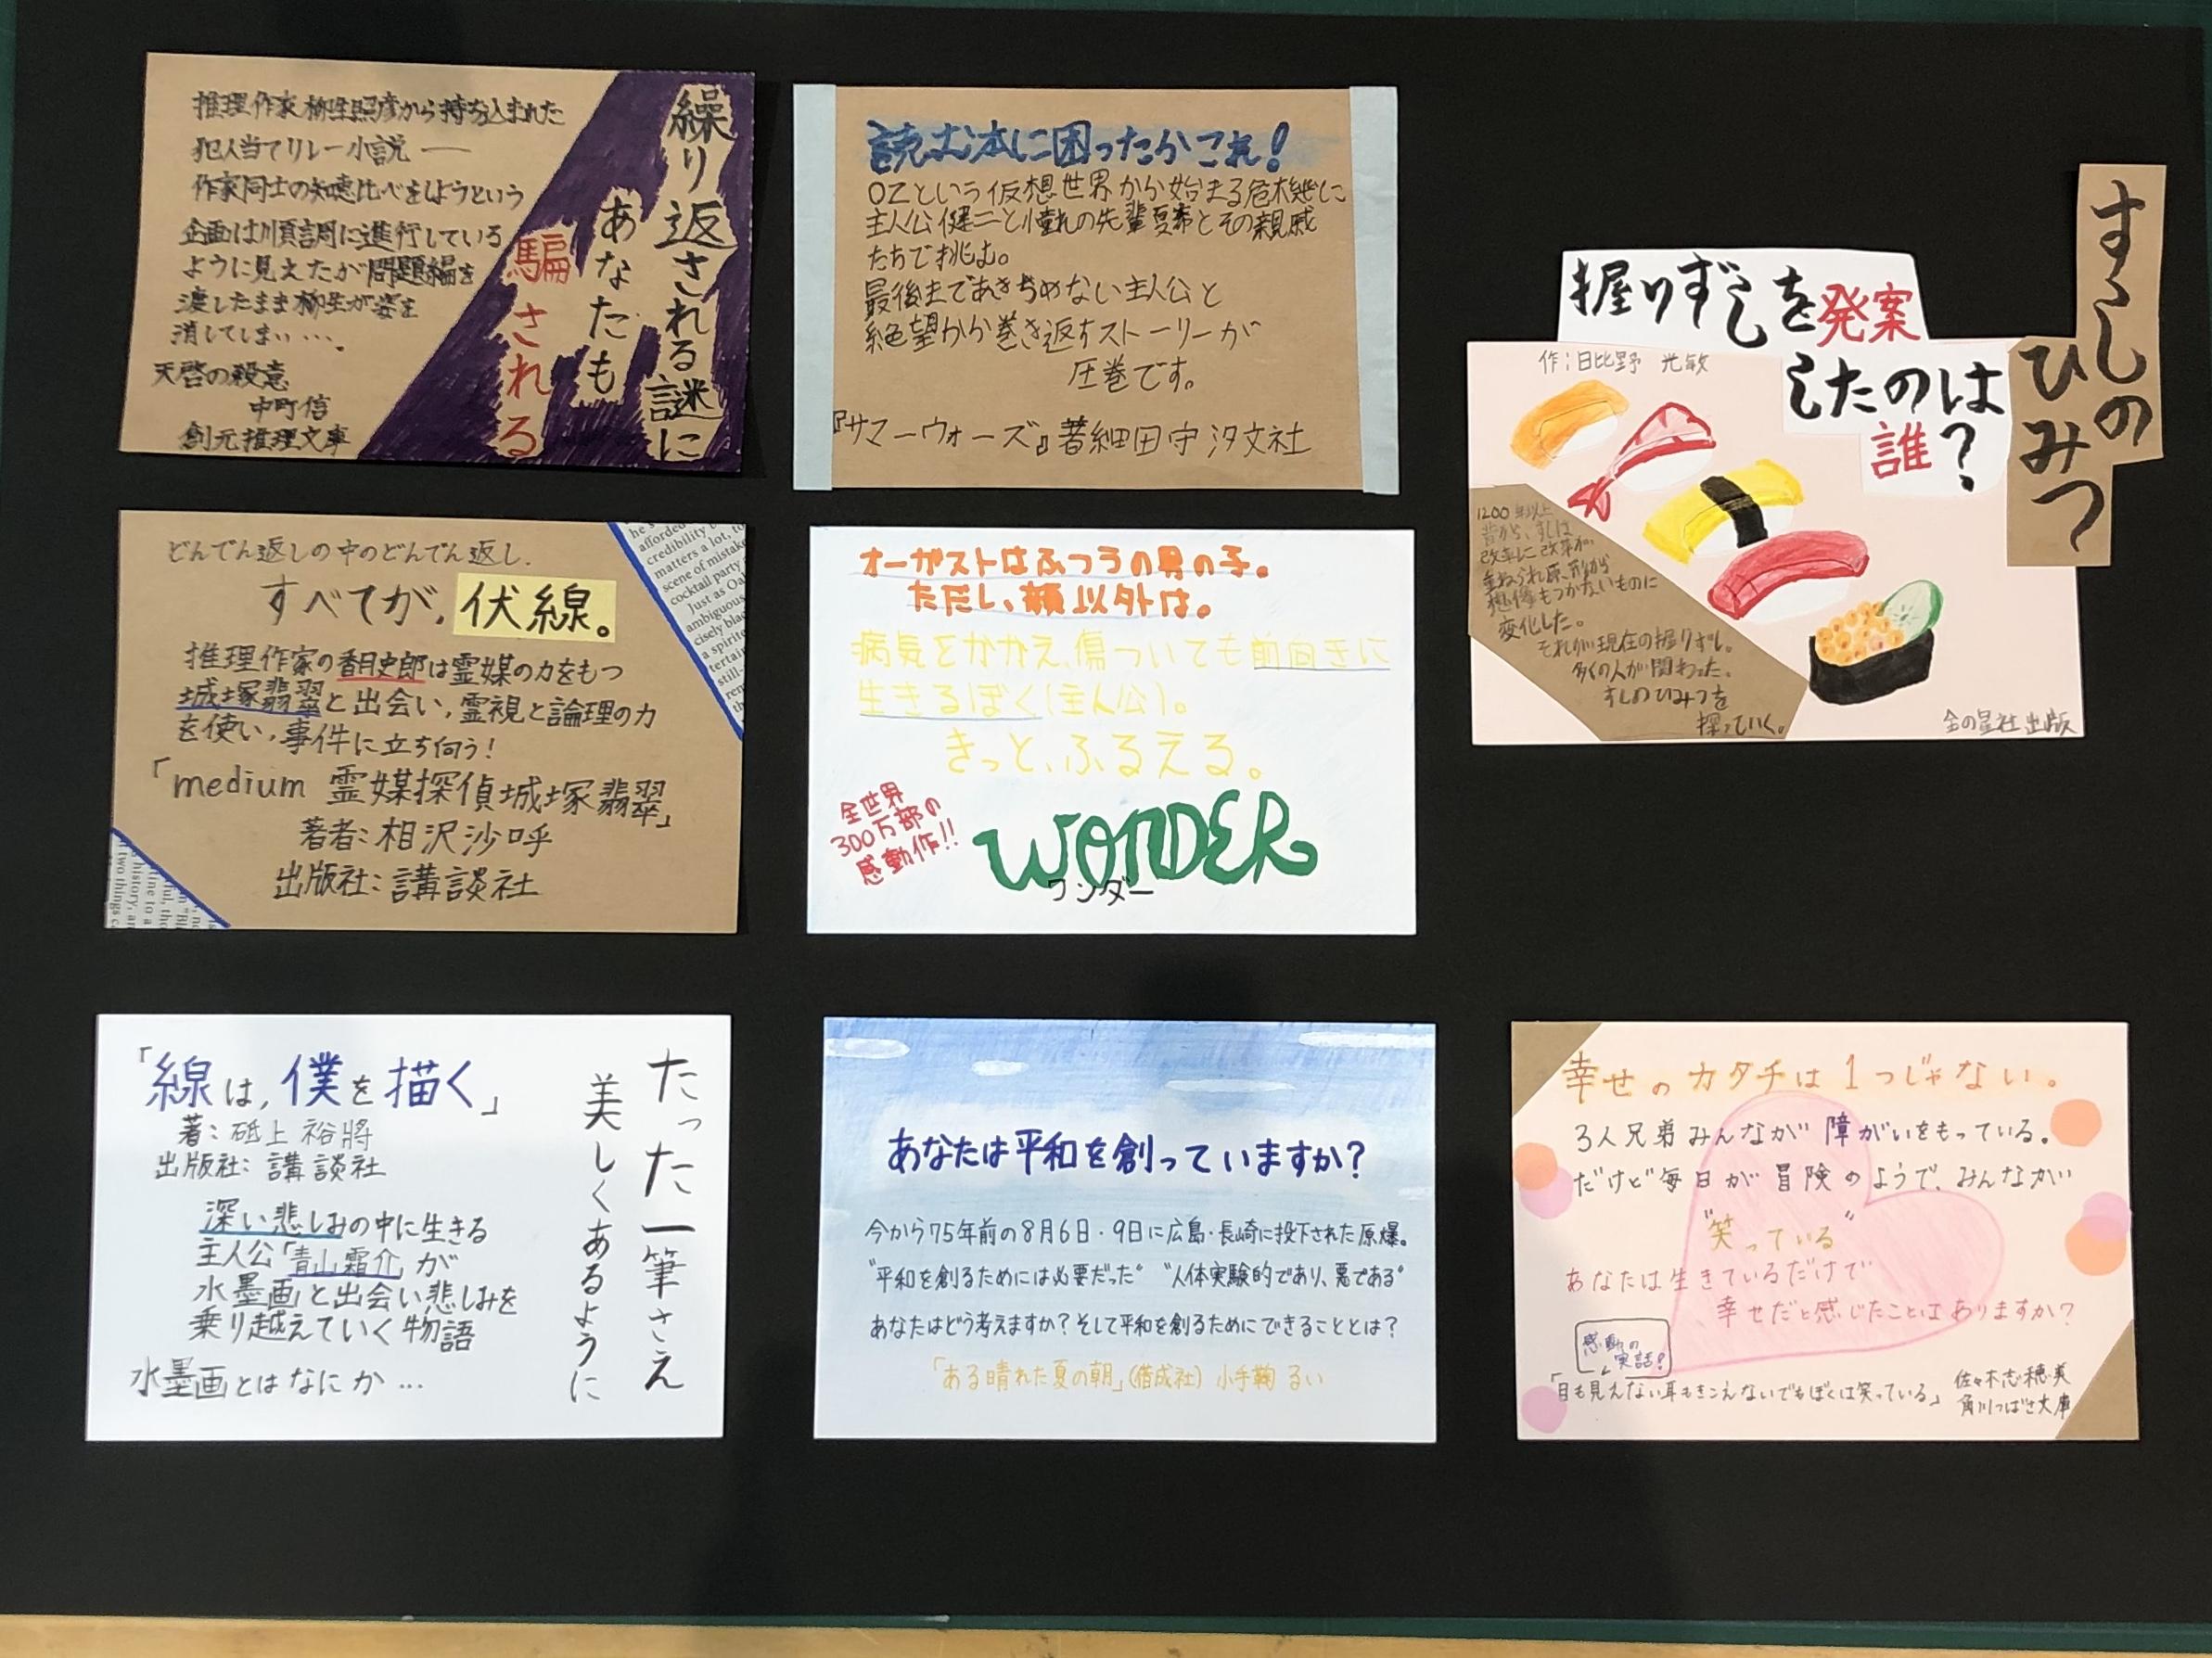 繰り返される謎に
あなたも
騙される
推理作家柳生照彦から持ち込まれた
犯人当てリレー小説――
作家同士の知恵比べをしようという
企画は順調に進行している
ように見えたが問題編を
渡したまま柳生が姿を
消してしまい…。
天啓の殺意
中町信
創元推理文庫
読む本に困ったらこれ!
OZという仮想世界から始まる危機に
主人公健二と憧れの先輩夏希とその親戚
たちで挑む。
最後まであきらめない主人公と
絶望から巻き返すストーリーが
圧巻です。
『サマーウォーズ』著細田守 汐文社
すしの
ひみつ
握りずしを発案
したのは
誰?
作:日比野 光敏
1200年以上
昔から、すしは
改革に改革が、
重ねられ原形から
想像もつかないものに
変化した。
それが現在の握りずし。
多くの人が関わった。
すしのひみつを
探っていく。
金の星社出版
どんでん返しの中のどんでん返し.
すべてが,伏線。
推理作家の香月史郎は霊媒の力をもつ
城塚翡翠と出会い,霊視と論理の力
を使い,事件に立ち向う!
「medium 霊媒探偵城塚翡翠」
著者:相沢沙呼
出版社:講談社
he's
afforded
credibility
matters a lot, t
scene of mistake
cocktail party
Just as Oa
ambiguous
cisely bla
a spirite
tertai
still-
オーガストはふつうの男の子。
ただし、顔以外は。
病気をかかえ、傷ついても前向きに
生きるぼく(主人公)。
きっと、ふるえる。
全世界
300万部の
感動作!!
WONDER
ワンダー
たった一筆さえ
美しくあるように
「線は,僕を描く」
著:砥上裕將
出版社:講談社
深い悲しみの中に生きる
主人公「青山霜介」が
水墨画と出会い悲しみを
乗り越えていく物語
水墨画とはなにか…
あなたは平和を創っていますか?
今から75年前の8月6日・9日に広島・長崎に投下された原爆。
"平和を創るためには必要だった" "人体実験的であり、悪である"
あなたはどう考えますか?そして平和を創るためにできることとは?
「ある晴れた夏の朝」(偕成社) 小手鞠るい
幸せのカタチは1つじゃない。
3人兄弟みんなが障がいをもっている。
だけど毎日が冒険のようで、みんなが
"笑っている"
あなたは生きているだけで
幸せだと感じたことはありますか?
感動の
実話!
「目も見えない耳もきこえないでもぼくは笑っている」
佐々木志穂美
角川つばさ文庫